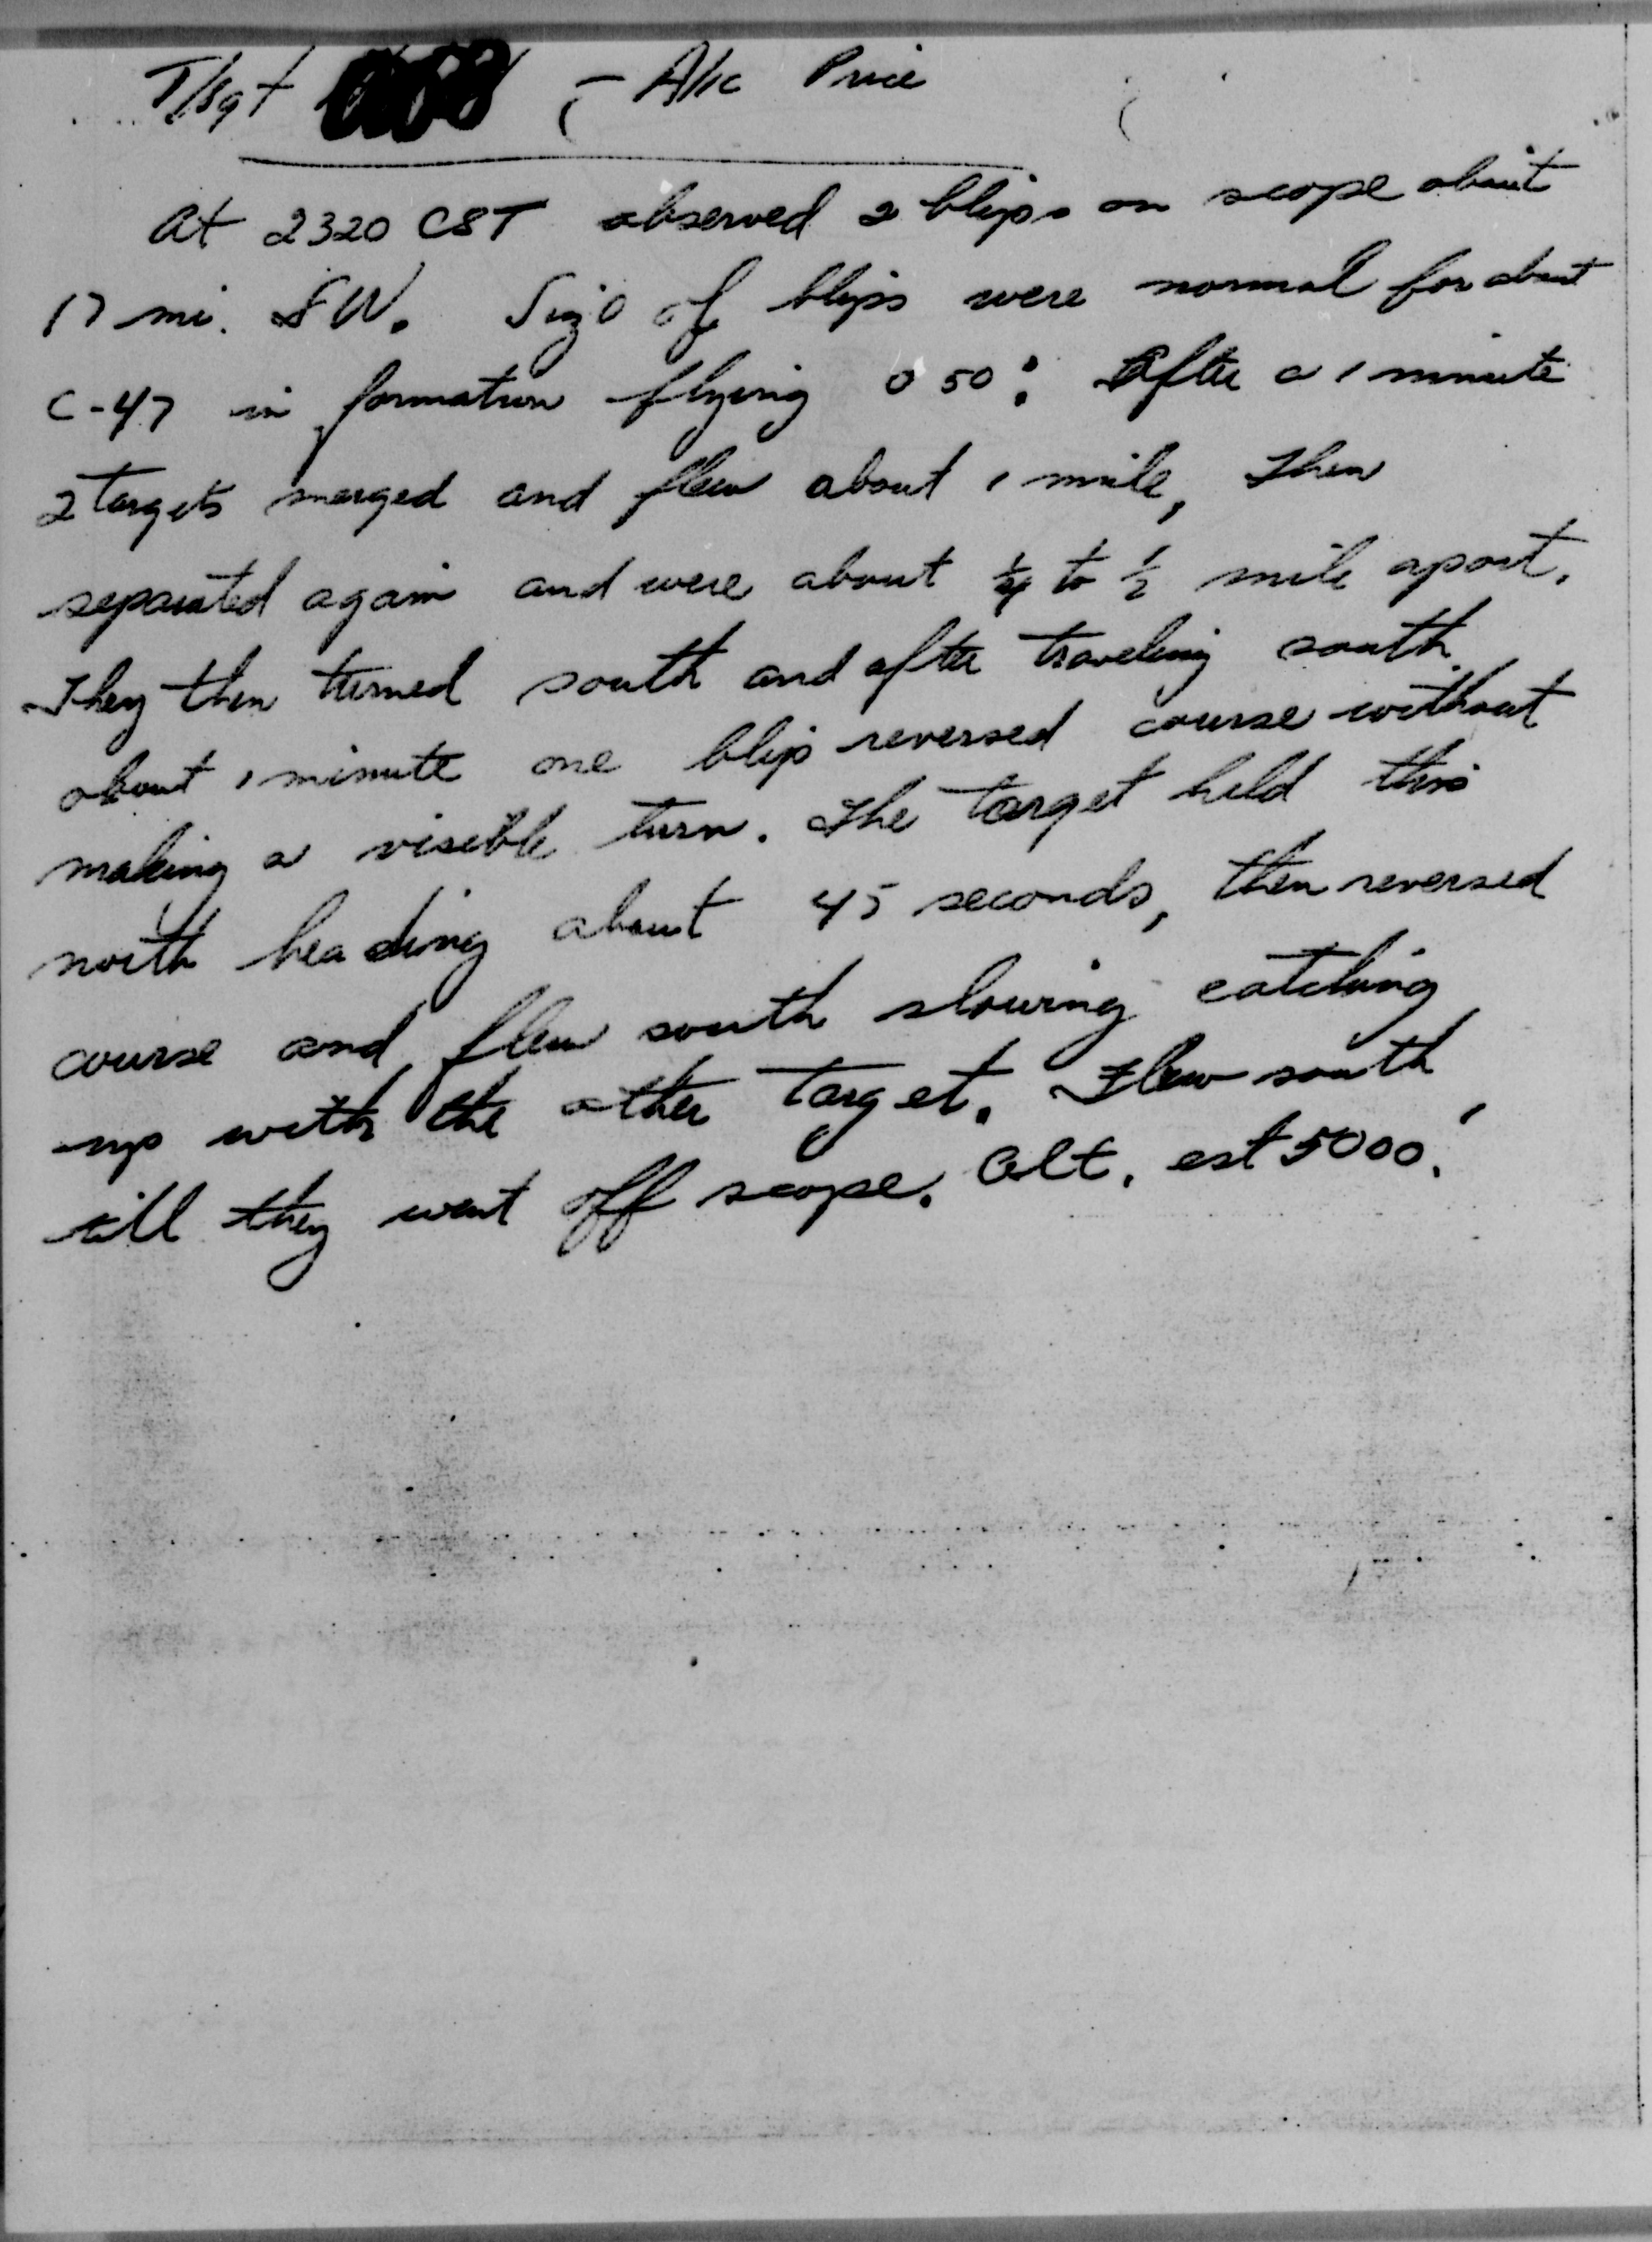 T/Sgt - A/1c Price
At 2320 CST observed 2 blips on scope about
17 mi. SW. Size of blips were normal for about
C-47 in formation flying 050°. After a 1 minute
2 targets merged and flew about 1 mile, then
separated again and were about 1/4 to 1/2 mile apart.
They then turned south and after traveling south
about 1 minute one blip reversed course without
making a visible turn. The target held this
north heading about 45 seconds, then reversed
course and flew south slowing catching
up with the other target. Flew south
till they went off scope. Alt. est 5000'.